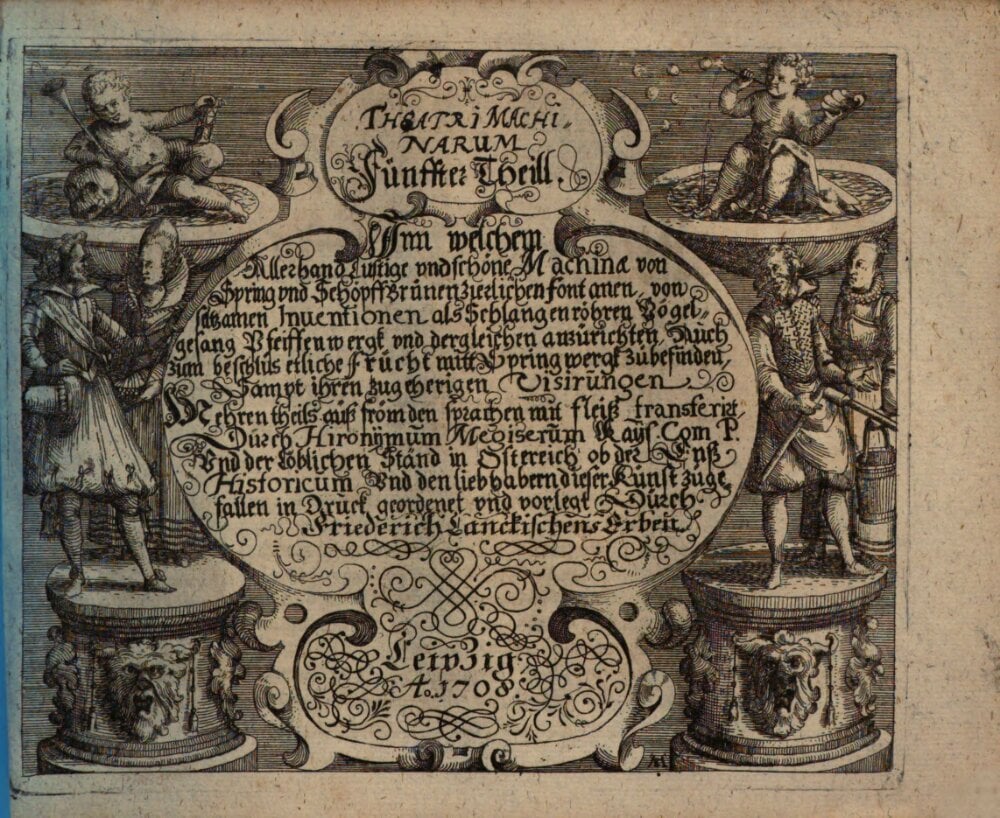 THEATRI MACHI,
NARUM
Fünffter Theill.
Inn welchem
Allerhand Lustige vnd schöne Machinæ von
Spring vnd Schöpff Brünen zierlichen fontanen, von
seltzamen Inuentionen als Schlangenröhren Vögel„
gesang Pfeiffenwergk vnd dergleichen anzürichten, Auch
zum beschlüs etliche Frücht mitt Spring wergk zübefinden,
Sampt ihren zugeherigen Visirüngen
Mehren theils auß frömden sprachen mit fleiß transferirt,
Dürch Hironÿmüm Megiserüm Kaÿs. Com. P.
Vnd der Löblichen Ständ in Östereich ob der Enß
Historicüm Vnd den liebhabern dieser Künst züge,
fallen in Drück geordenet vnd vorlegt Dürch
Friederich Lanckischens Erben.
Leipzig
Ao. 1708
AM